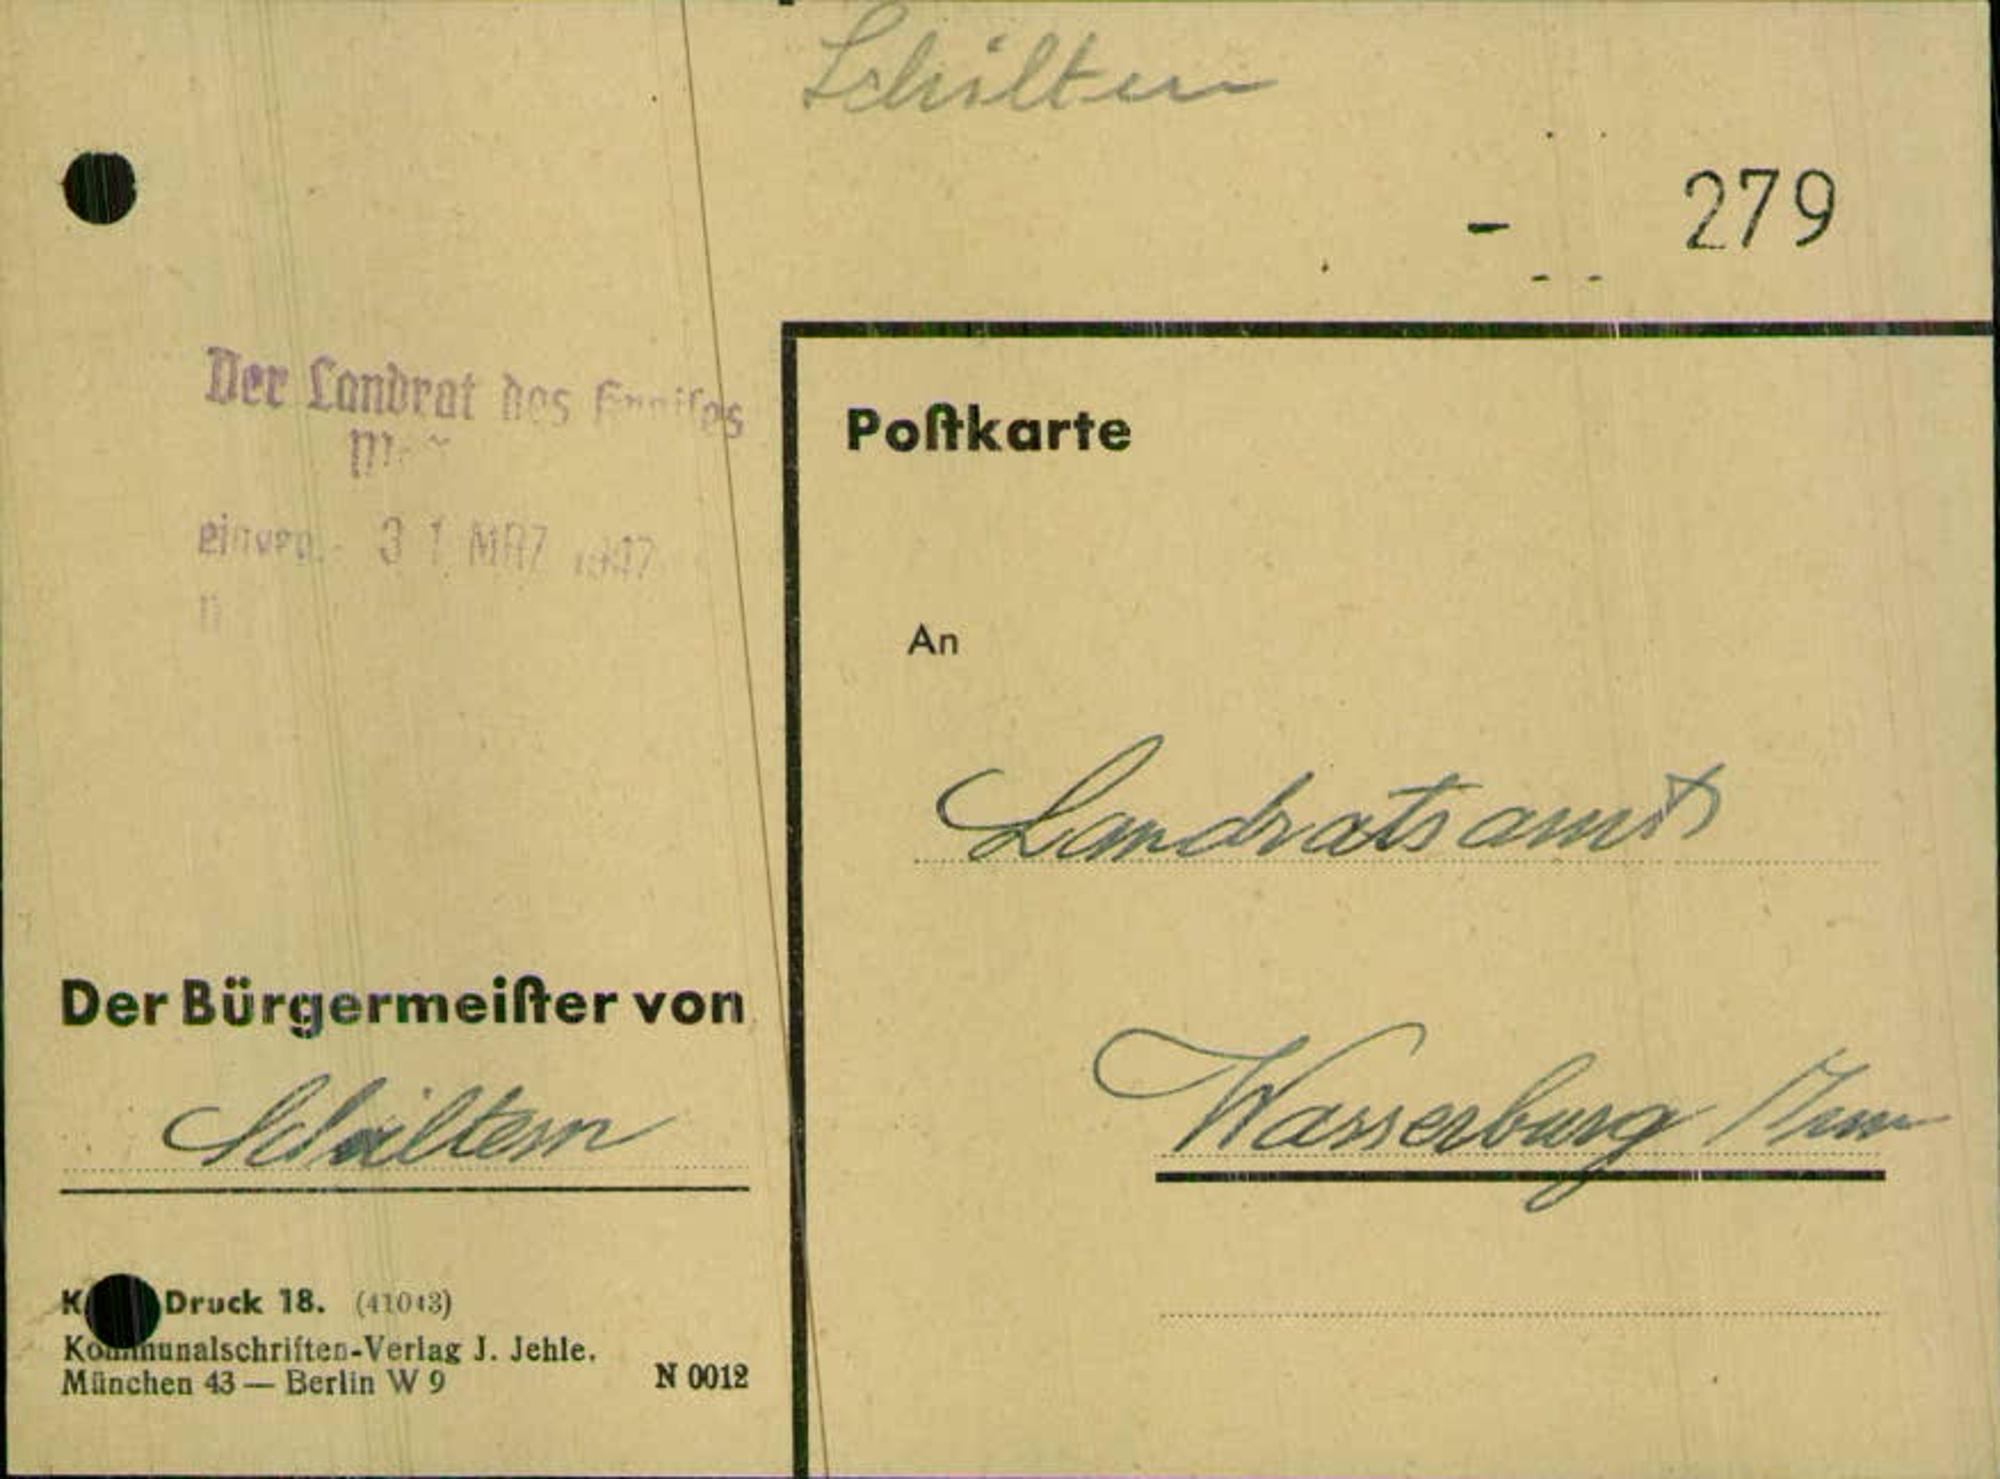 Schiltern
279
Der Landrat des Kreises
eingeg. 31 MRZ 1947
Poſtkarte
An
Landratsamt
Wasserburg / Inn
Der Bürgermeiſter von
Schiltern
Druck 18. (41043)
Kommunalschriften-Verlag J. Jehle.
München 43 — Berlin W 9
N 0012